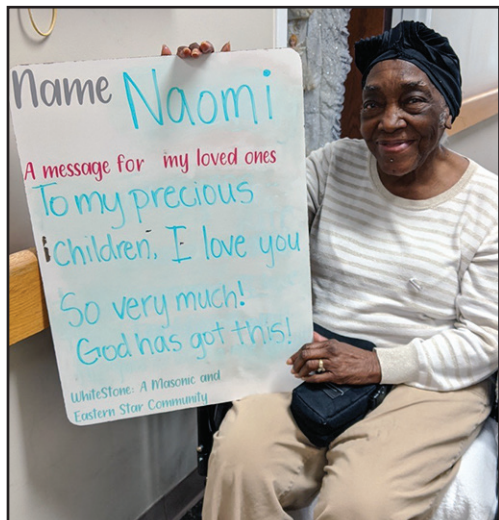 Name Naomi
A message for my loved ones
To my precious
children, I love you
So very much!
God has got this!
WhiteStone: A Masonic and
Eastern Star Community